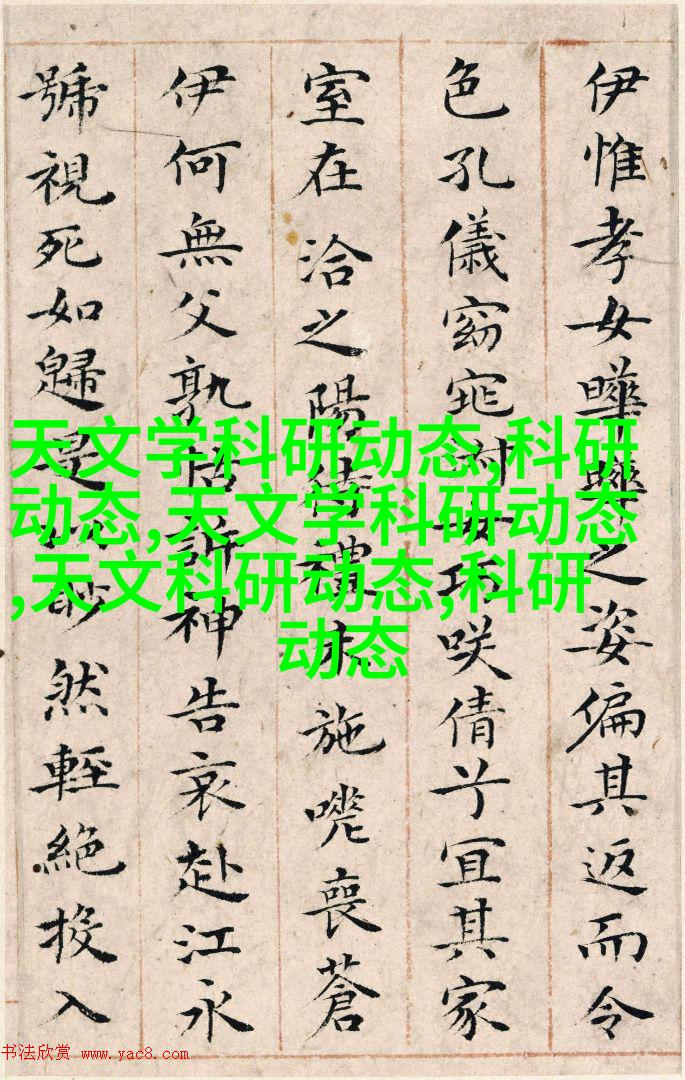 伊惟孝女曄曄之姿偏其返而令
色孔儀窈窕淑女巧咲倩兮宜其家
室在洽之陽待禮未施嗟喪蒼
伊何無父孰怙訴神告哀赴江永
號視死如歸是以眇然輕絕投入
天文学科研动态,科研
动态,天文学科研动态
,天文科研动态,科研
动态
书法欣赏 www.yac8.com